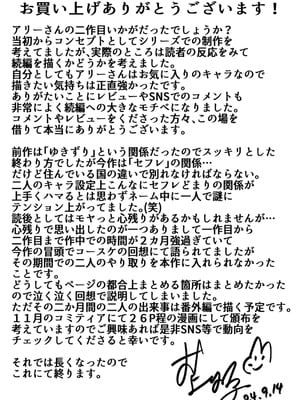 お買い上げありがとうございます！
アリーさんの二作目いかがだったでしょうか？
当初からコンセプトとしてシリーズでの制作を
考えてましたが、実際のところは読者の反応をみて
続編を描くかどうかを考えました。
自分としてもアリーさんはお気に入りのキャラなので
描きたい気持ちは正直強かったです。
ありがたいことにレビューやSNSでのコメントも
非常によく続編への大きなモチベになりました。
コメントやレビューをくださった方々、この場を
借りて本当にありがとうございます。
前作は「ゆきずり」という関係だったのでスッキリとした
終わり方でしたが今作は「セフレ」の関係…
だけど住んでいる国の違いで別れなければならない。
二人のキャラ設定上こんなにセフレどまりの関係が
上手くハマるとは思わずネーム中に一人で謎に
テンション上がってました。(笑)
読後としてはモヤっと心残りがあるかもしれませんが…
心残りで思い出したのが一つありまして一作目から
二作目まで作中での時間が２カ月強過ぎていて
今作の冒頭でコースケの回想にて語られてましたが
その期間での二人のやり取りを本作に入れられなかった
ことです。
どうしてもページの都合上まとめる箇所はまとめたかった
ので泣く泣く回想で説明してしまいました。
ただその二か月間の二人の出来事は番外編で描く予定です。
１１月のコミティアにて２６P程の漫画にして頒布を
考えていますのでご興味あれば是非SNS等で動向を
チェックしてくださると幸いです。
それでは長くなったので
これにて終ります。
'24.9.14